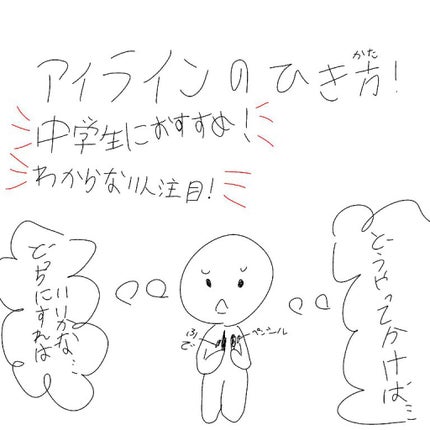 アイラインのひき方！
かた
中学生におすすめ！
わからない人注目！
どうやってかけば…
どっちにすれば
いいかな…
ふで
ペンシル